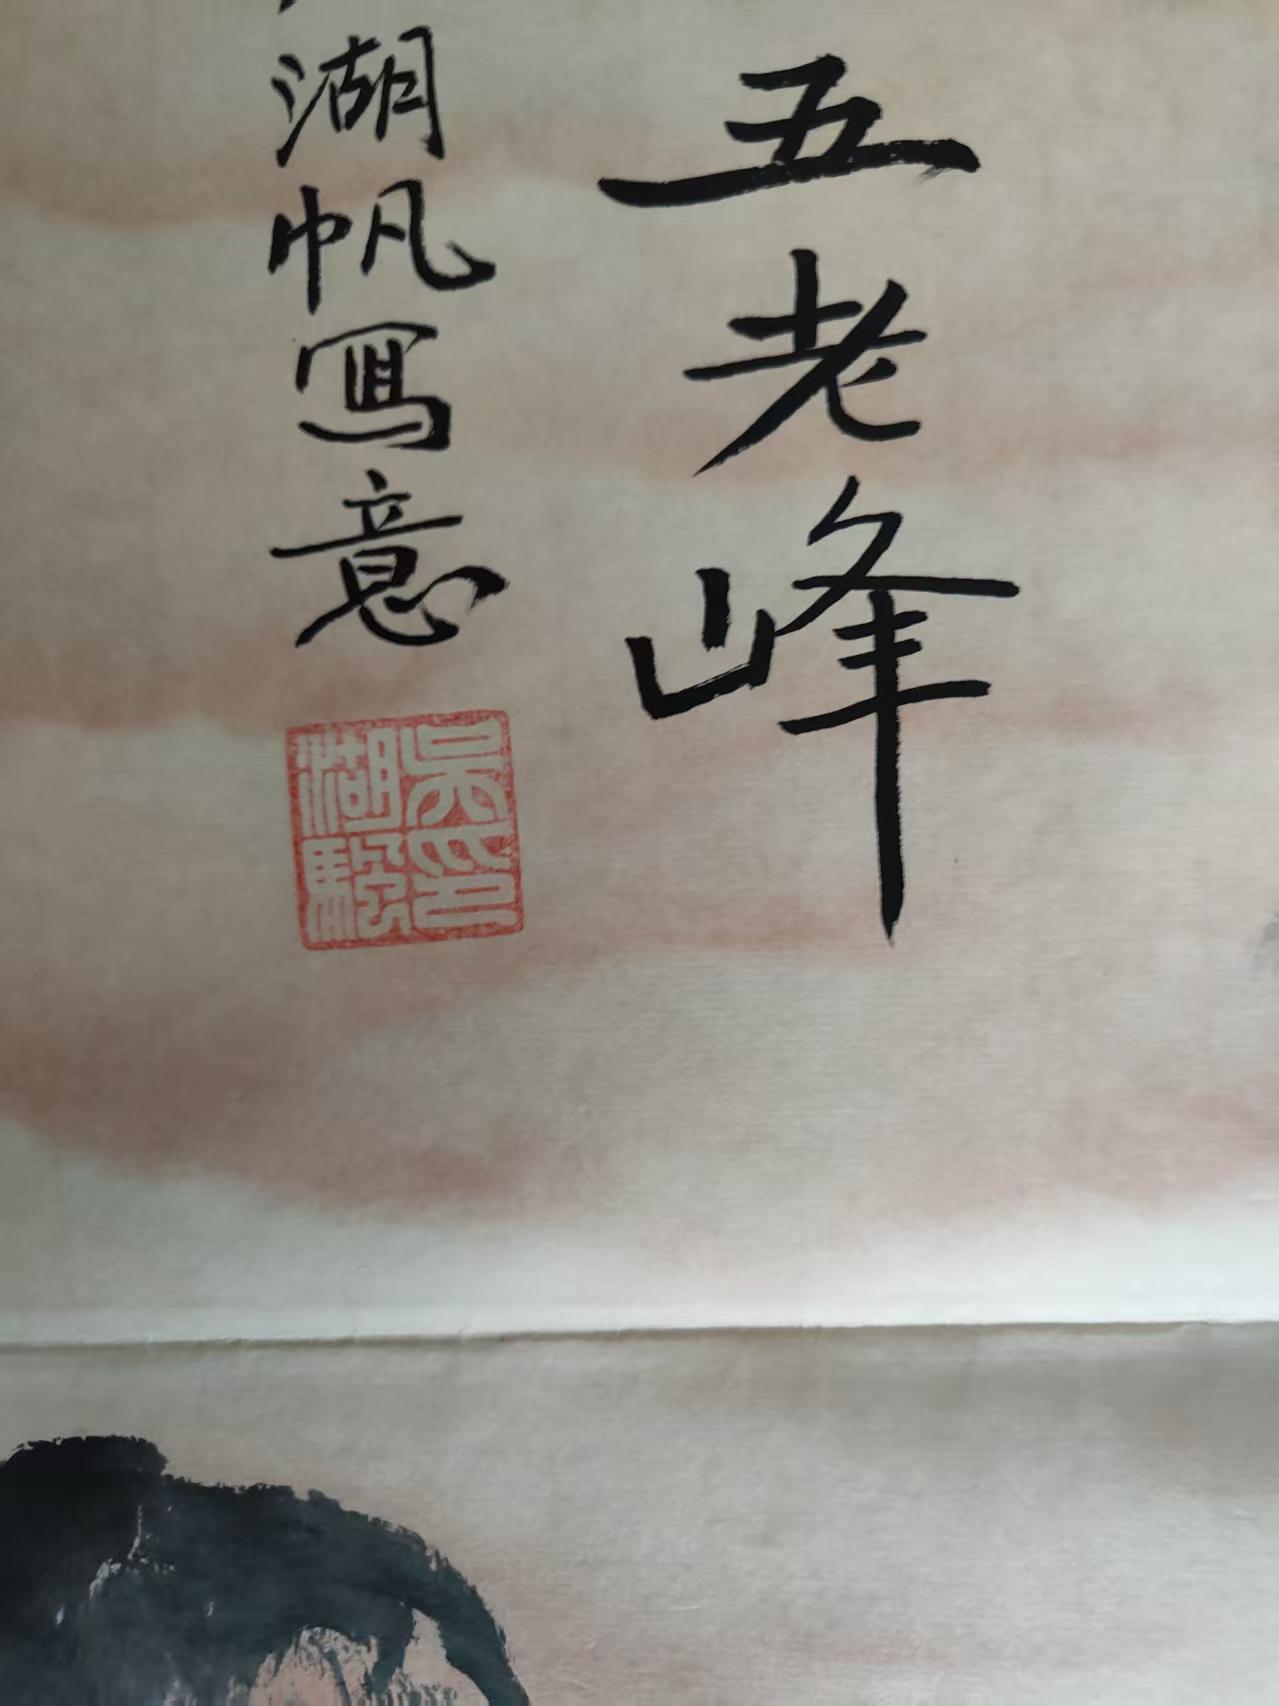 五老峰
湖帆寫意
吳湖驂印